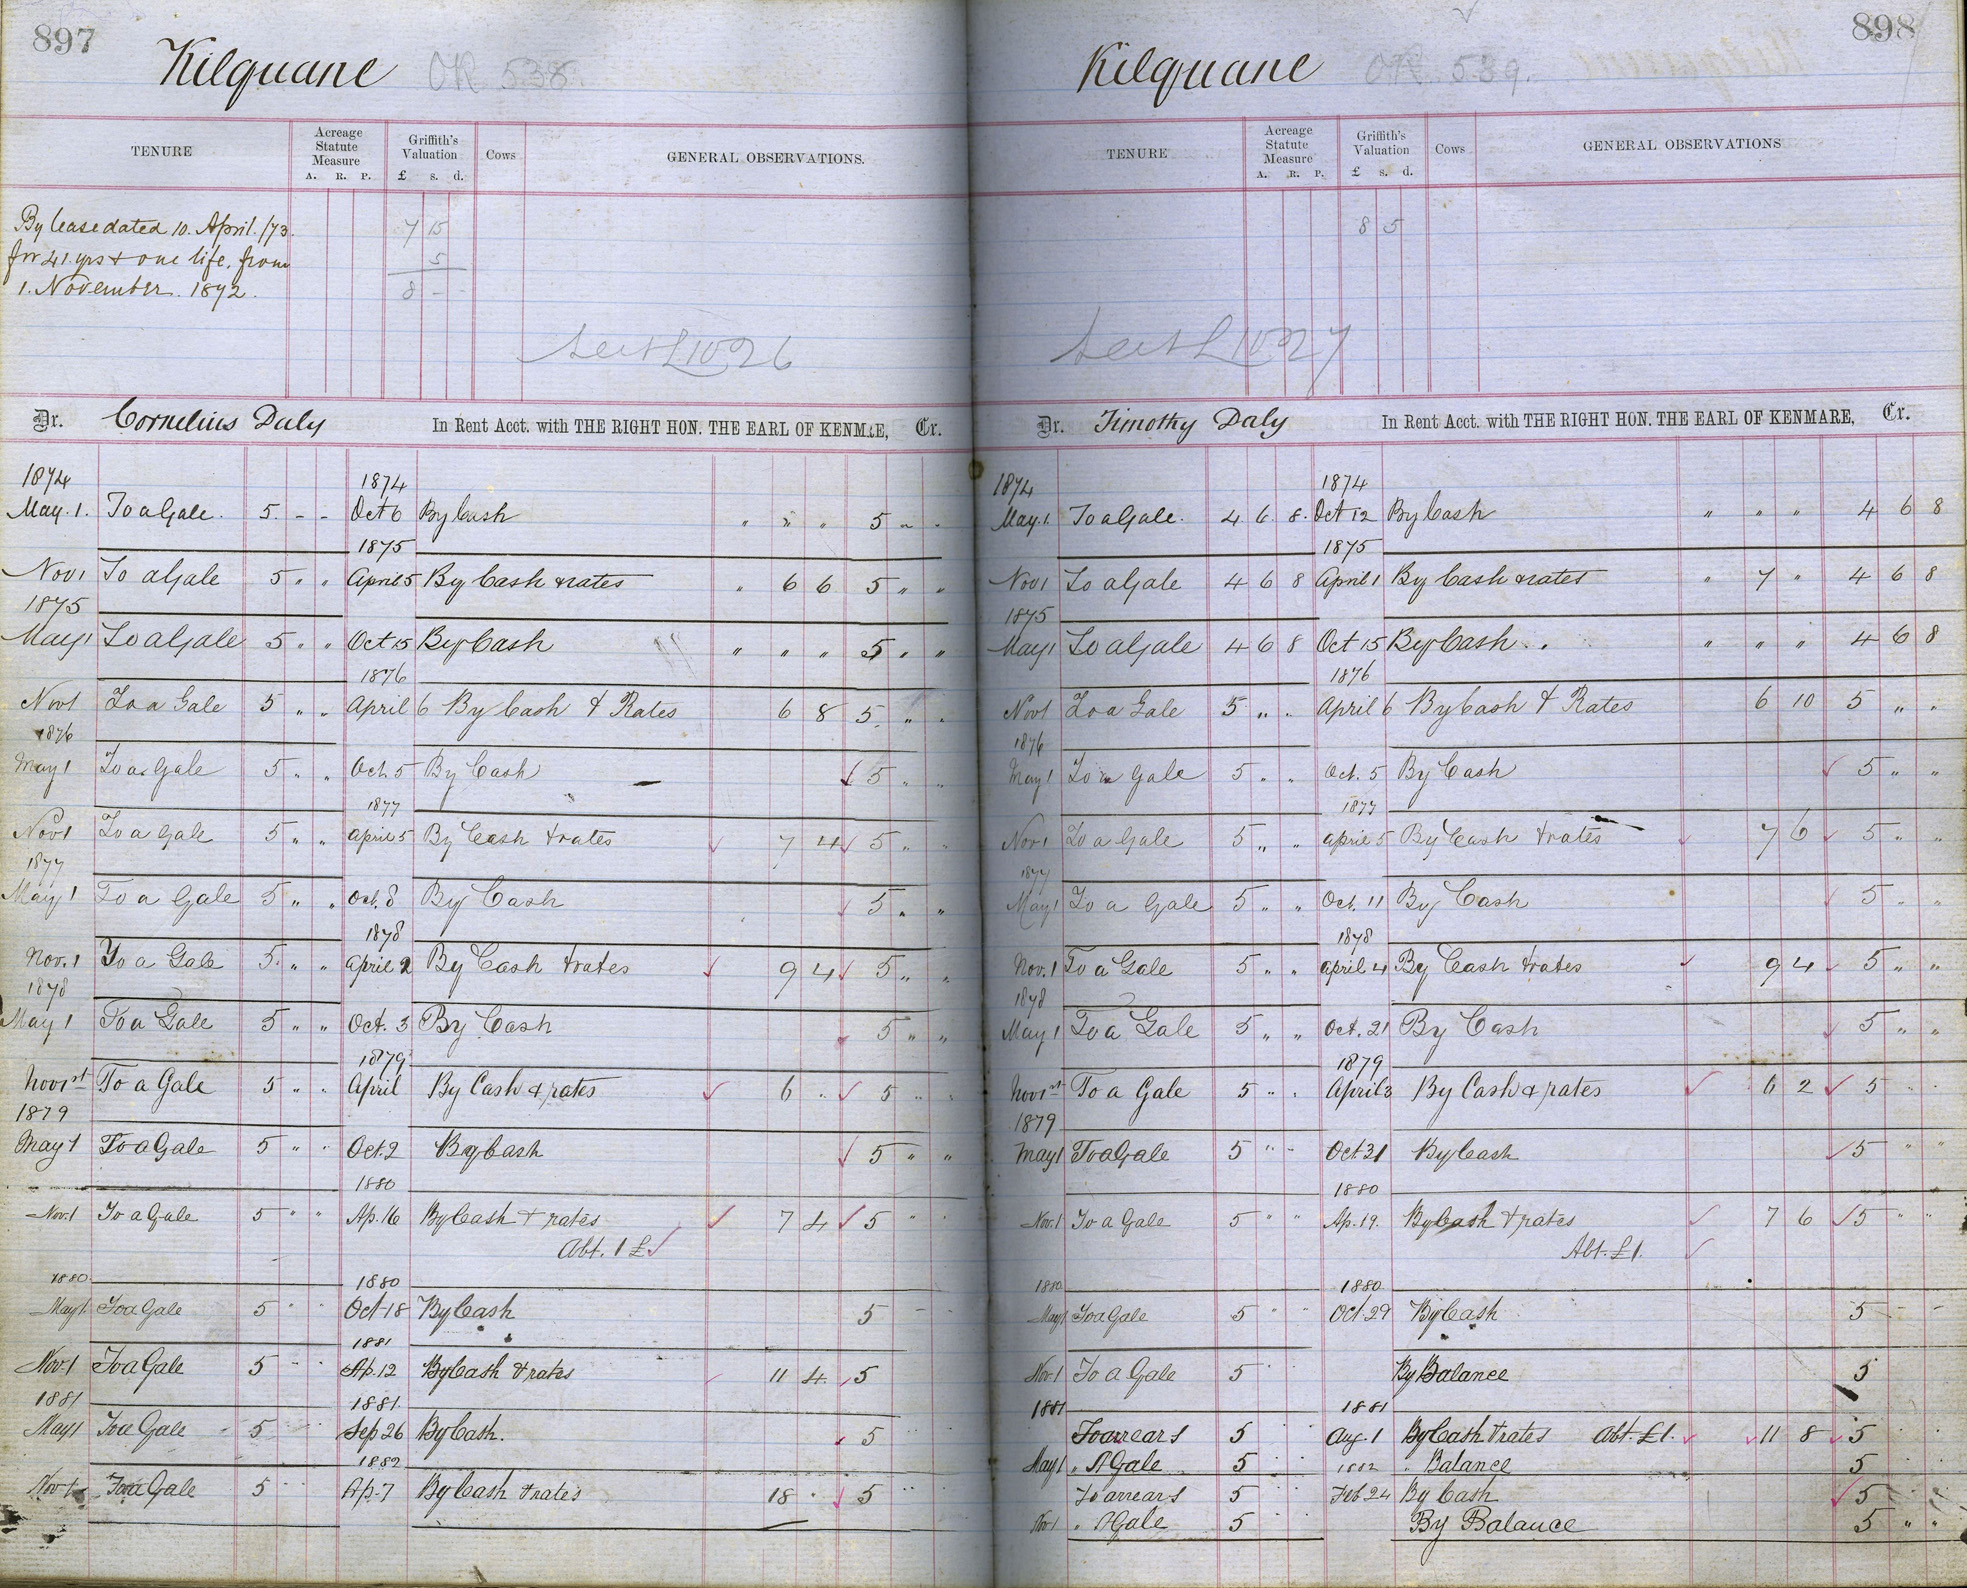 897
Kilquane OR 538.
TENURE
Acreage Statute Measure
A. R. P.
Griffith's Valuation
£ s. d.
Cows
GENERAL OBSERVATIONS.
By lease dated 10. April. /73. 7 15
for 41 yrs + one life, from 5
1. November. 1872. 8 - -
1026
Dr. Cornelius Daly In Rent Acct. with THE RIGHT HON. THE EARL OF KENMARE, Cr.
1874 1874
May. 1. To a Gale. 5. - - Oct 6 By Cash " " " 5 " "
1875
Nov 1 To a Gale 5 " " April 5 By Cash & rates " 6 6 5 " "
1875
May 1 To a Gale 5 " " Oct 15 By Cash " " " 5 " "
1876
Nov 1 To a Gale 5 " " April 6 By Cash & Rates 6 8 5 " "
1876
May 1 To a Gale 5 " " Oct. 5 By Cash 5 " "
1877
Nov 1 To a Gale 5 " " April 5 By Cash & rates 7 4 5 " "
1877
May 1 To a Gale 5 " " Oct. 8 By Cash 5 " "
1878
Nov. 1 To a Gale 5 " " April 2 By Cash & rates 9 4 5 " "
1878
May 1 To a Gale 5 " " Oct. 3 By Cash 5 " "
1879
Nov 1st To a Gale 5 " " April By Cash & rates 6 " 5 " "
1879
May 1 To a Gale 5 " " Oct. 2 By Cash 5 " "
1880
Nov. 1 To a Gale 5 " " Ap. 16 By Cash & rates 7 4 5 " "
Abt. 1 £
1880 1880
May 1 To a Gale 5 " " Oct 18 By Cash 5 - -
1881
Nov. 1 To a Gale 5 " " Ap. 12 By Cash & rates 11 4 5
1881 1881
May 1 To a Gale 5 Sep 26 By Cash. 5
1882
Nov 1 To a Gale 5 Ap. 7 By Cash & rates 18 " 5 " "
898
Kilquane OR 539.
TENURE
Acreage Statute Measure
A. R. P.
Griffith's Valuation
£ s. d.
Cows
GENERAL OBSERVATIONS
8 5
1027
Dr. Timothy Daly In Rent Acct. with THE RIGHT HON. THE EARL OF KENMARE, Cr.
1874 1874
May. 1. To a Gale. 4 6 8. Oct 12 By Cash " " " 4 6 8
1875
Nov 1 To a Gale 4 6 8 April 1 By Cash & rates " 7 " 4 6 8
1875
May 1 To a Gale 4 6 8 Oct 15 By Cash " " " 4 6 8
1876
Nov 1 To a Gale 5 " " April 6 By Cash & Rates 6 10 5 " "
1876
May 1 To a Gale 5 " " Oct. 5 By Cash 5 " "
1877
Nov 1 To a Gale 5 " " April 5 By Cash & rates 7 6 5 " "
1877
May 1 To a Gale 5 " " Oct. 11 By Cash 5 " "
1878
Nov. 1 To a Gale 5 " " April 4 By Cash & rates 9 4 5 " "
1878
May 1 To a Gale 5 " " Oct. 21 By Cash 5 " "
1879
Nov 1st To a Gale 5 " " April 3 By Cash & rates 6 2 5 " "
1879
May 1 To a Gale 5 " " Oct 31 By Cash 5 " "
1880
Nov. 1 To a Gale 5 " " Ap. 19. By Cash & rates 7 6 5 " "
Abt. £1.
1880 1880
May 1 To a Gale 5 " " Oct 29 By Cash 5 - -
Nov. 1 To a Gale 5 By Balance 5
1881 1881
To arrears 5 Aug. 1 By Cash & rates Abt. £1. 11 8 5
May 1 " A Gale 5 1882 " Balance 5
To arrears 5 Feb 24 By Cash 5
Nov 1 " A Gale 5 By Balance 5 " "